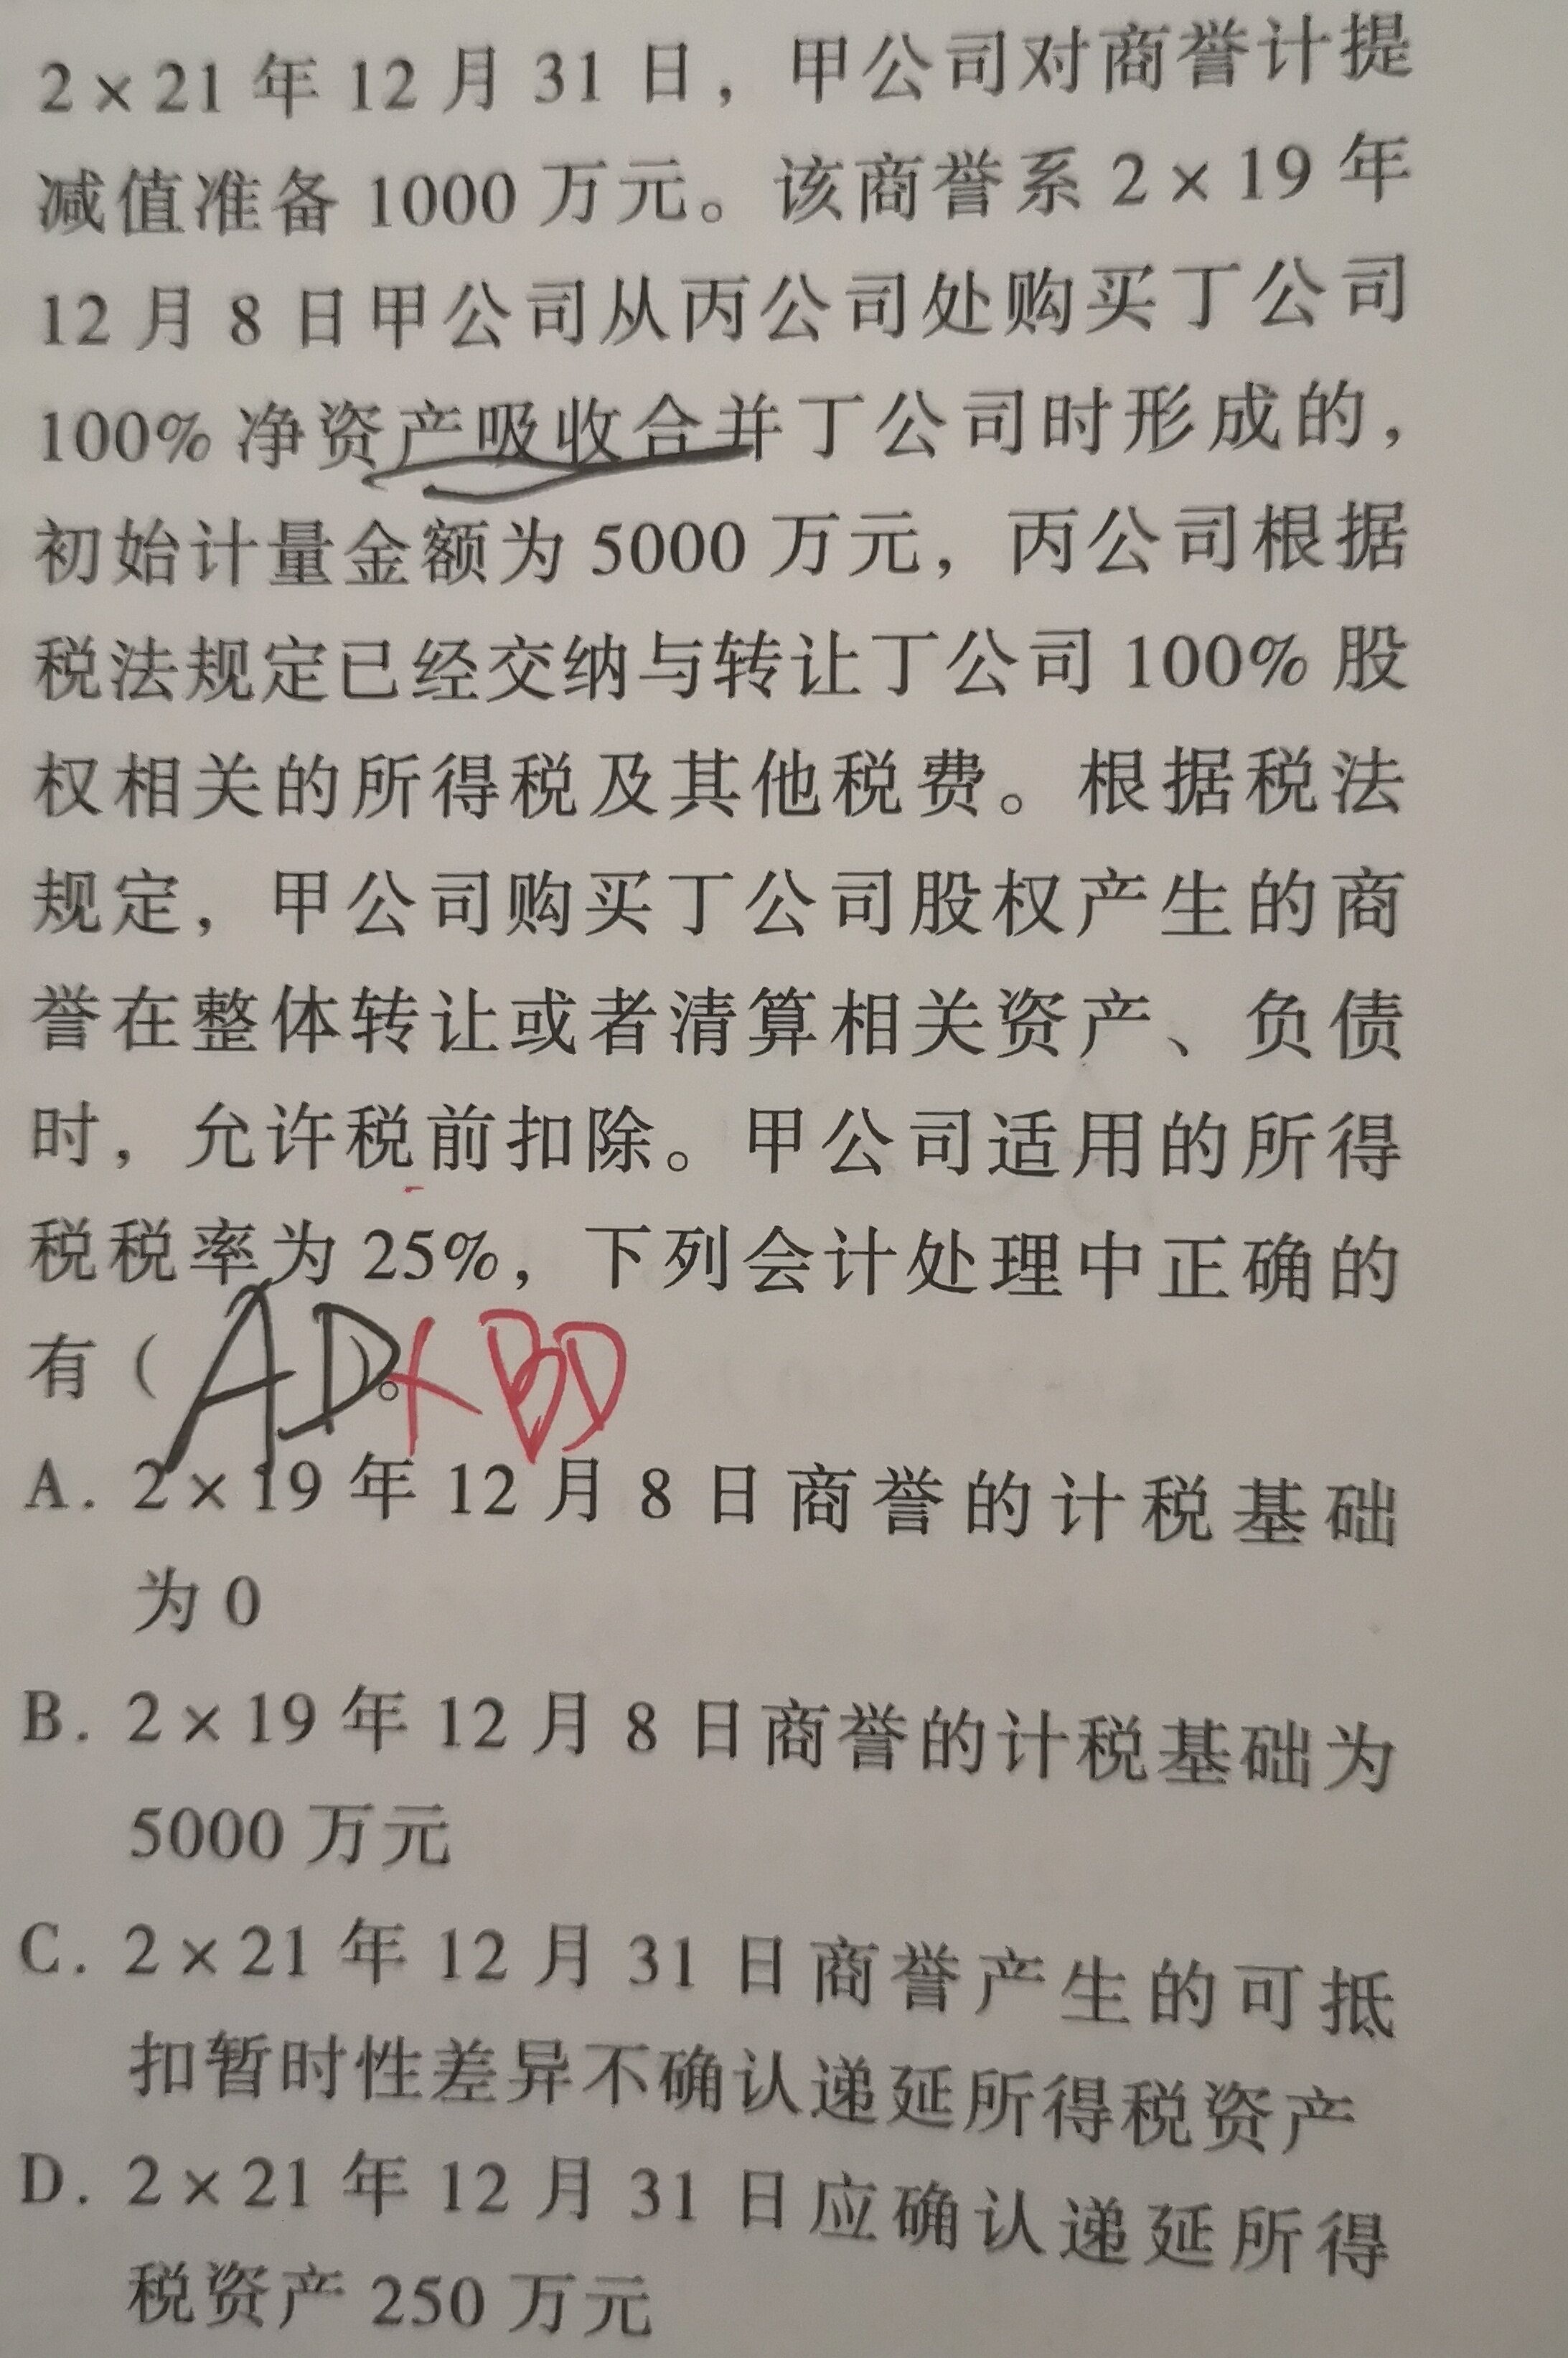 2×21年12月31日，甲公司对商誉计提
减值准备1000万元。该商誉系2×19年
12月8日甲公司从丙公司处购买丁公司
100%净资产吸收合并丁公司时形成的，
初始计量金额为5000万元，丙公司根据
税法规定已经交纳与转让丁公司100%股
权相关的所得税及其他税费。根据税法
规定，甲公司购买丁公司股权产生的商
誉在整体转让或者清算相关资产、负债
时，允许税前扣除。甲公司适用的所得
税税率为25%，下列会计处理中正确的
有（AD）。× BD
A. 2×19年12月8日商誉的计税基础
为0
B. 2×19年12月8日商誉的计税基础为
5000万元
C. 2×21年12月31日商誉产生的可抵
扣暂时性差异不确认递延所得税资产
D. 2×21年12月31日应确认递延所得
税资产250万元